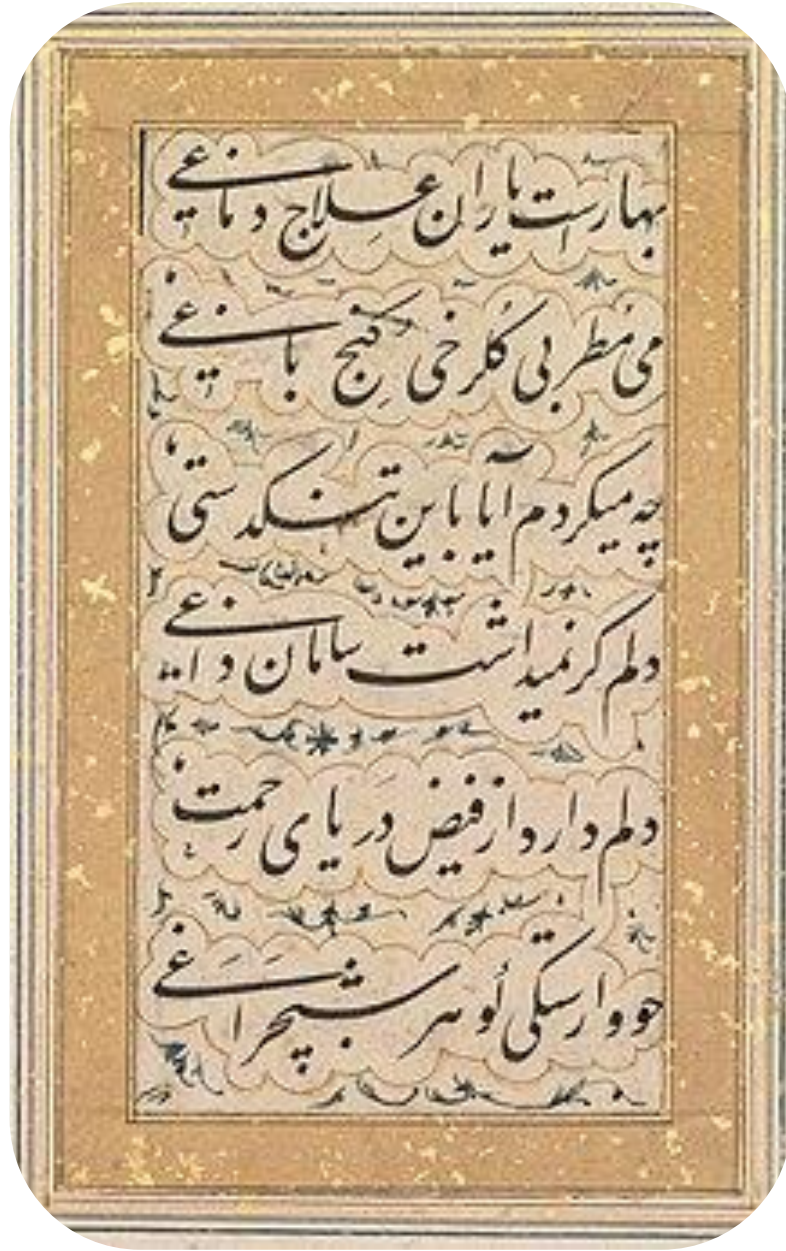 بهارست یاران علاج دماغی
می مُطربی کُلرخی کنج باغی
چه میکردم آیا باین تنکدستی
دلم کر نمیداشت سامان داغی
دلم دارد از فیض دریای رحمت
چو وارستکی کوهر شبچراغی